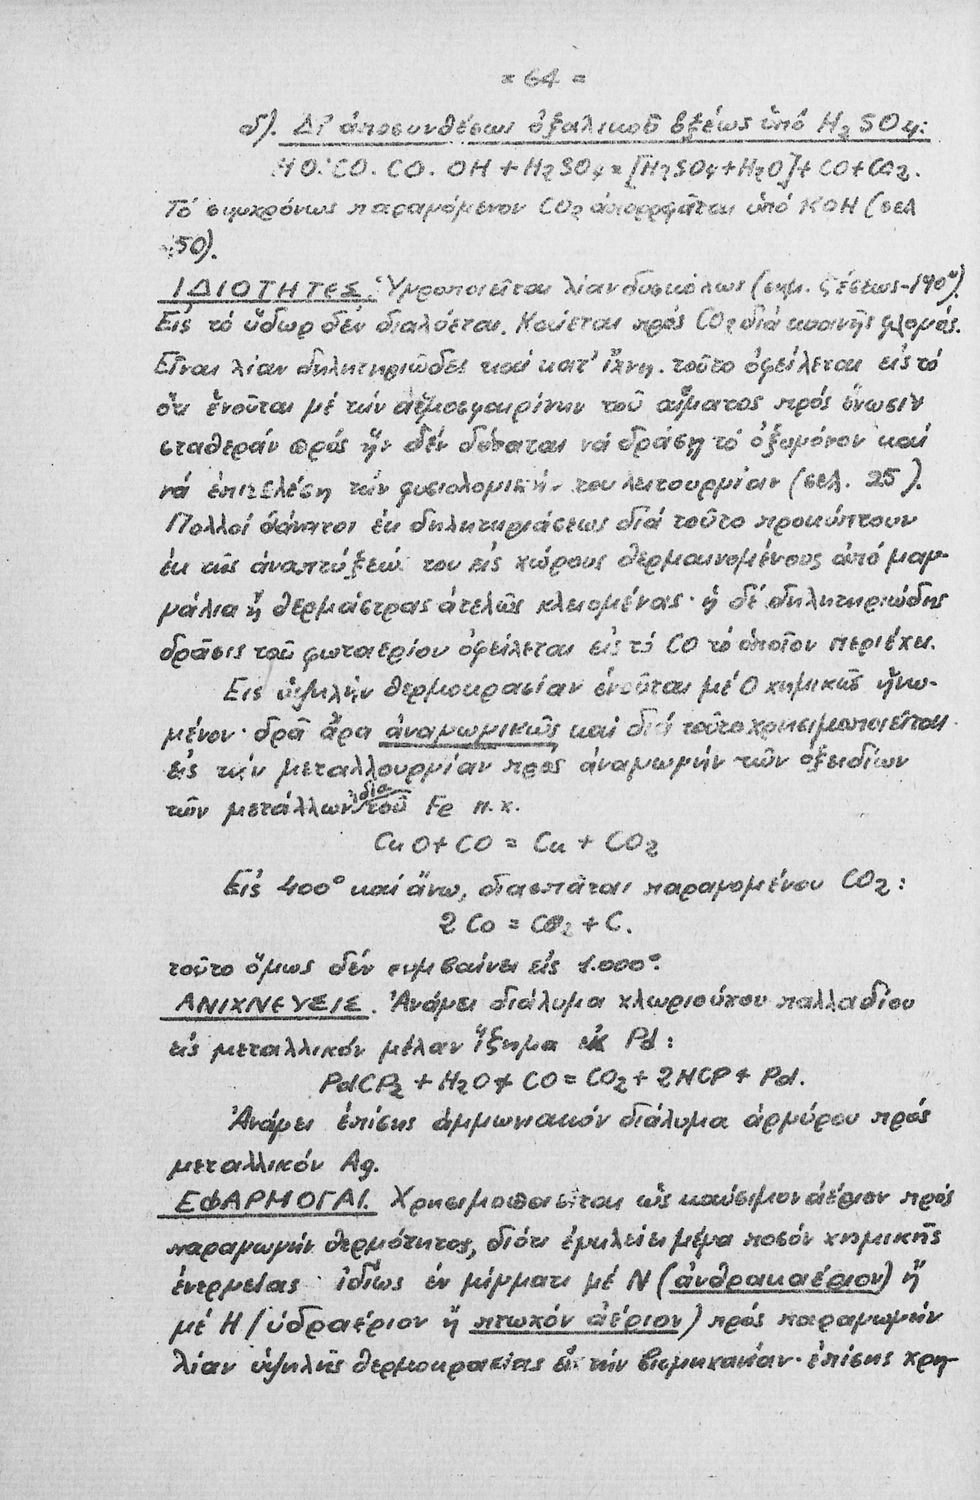 = 64 =
δ). Δι' ἀποσυνθέσεως ὀξαλικοῦ ὀξέως ὑπό H₂SO₄:
HO·CO.CO.OH + H₂SO₄ = [H₂SO₄+H₂O] + CO+CO₂.
Τό συγχρόνως παραγόμενον CO₂ ἀπορροφᾶται ὑπό KOH (σελ
50).
ΙΔΙΟΤΗΤΕΣ. Ὑγροποιεῖται λίαν δυσκόλως (σημ. ζέσεως -190°).
Εἰς τό ὕδωρ δέν διαλύεται. Καίεται πρός CO₂ διά κυανῆς φλογός.
Εἶναι λίαν δηλητηριῶδες καί κατ' ἴχνη. τοῦτο ὀφείλεται εἰς τό
ὅτι ἑνοῦται μέ τήν αἱμοσφαιρίνην τοῦ αἵματος πρός ἕνωσιν
σταθεράν πρός ἥν δέν δύναται νά δράσῃ τό ὀξυγόνον καί
νά ἐπιτελέσῃ τήν φυσιολογικήν του λειτουργίαν (σελ. 25).
Πολλοί θάνατοι ἐκ δηλητηριάσεως διά τοῦτο προκύπτουν
ἐκ τῆς ἀναπτύξεώς του εἰς χώρους θερμαινομένους ἀπό μαγ-
γάλια ἤ θερμάστρας ἀτελῶς κλειομένας· ἡ δέ δηλητηριώδης
δρᾶσις τοῦ φωταερίου ὀφείλεται εἰς τό CO τό ὁποῖον περιέχει.
Εἰς ὑψηλήν θερμοκρασίαν ἑνοῦται μέ O χημικῶς ἡνω-
μένον· δρᾶ ἄρα ἀναγωγικῶς καί διά τοῦτο χρησιμοποιεῖται
εἰς τήν μεταλλουργίαν πρός ἀναγωγήν τῶν ὀξειδίων
τῶν μετάλλων ἰδίᾳ τοῦ Fe π.χ.
CuO + CO = Cu + CO₂
Εἰς 400° καί ἄνω, διασπᾶται παραγομένου CO₂:
2 Co = CO₂ + C.
τοῦτο ὅμως δέν συμβαίνει εἰς 1.000°.
ΑΝΙΧΝΕΥΣΙΣ. Ἀνάγει διάλυμα χλωριούχου παλλαδίου
εἰς μεταλλικόν μέλαν ἵζημα ἐκ Pd:
PdCl₂ + H₂O + CO = CO₂ + 2HCl + Pd.
Ἀνάγει ἐπίσης ἀμμωνιακόν διάλυμα ἀργύρου πρός
μεταλλικόν Ag.
ΕΦΑΡΜΟΓΑΙ. Χρησιμοποιεῖται ὡς καύσιμον ἀέριον πρός
παραγωγήν θερμότητος, διότι ἐγκλείει μέγα ποσόν χημικῆς
ἐνεργείας· ἰδίως ἐν μίγματι μέ N (ἀνθρακαέριον) ἤ
μέ H (ὑδραέριον ἤ πτωχόν ἀέριον) πρός παραγωγήν
λίαν ὑψηλῆς θερμοκρασίας εἰς τήν βιομηχανίαν· ἐπίσης χρη-